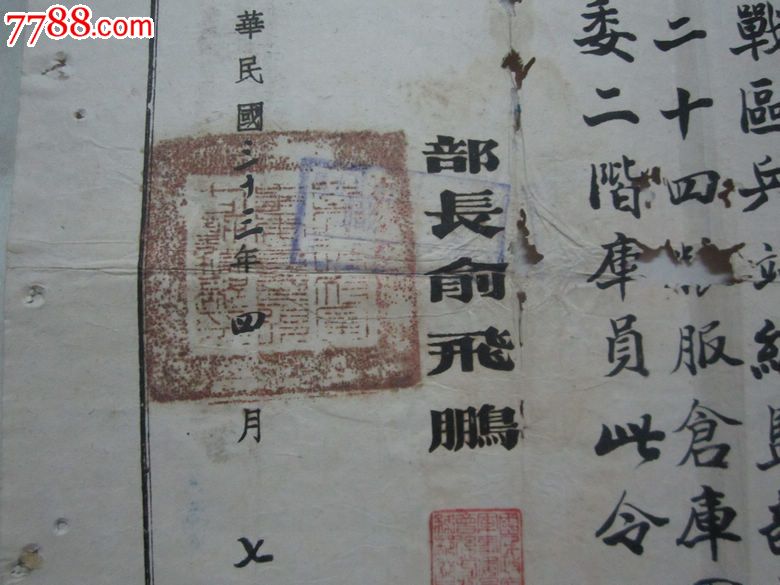 7788.com
戰區兵站總監部
二十四服倉庫
委二階庫員此令
部長俞飛鵬
華民國三十三年四月七